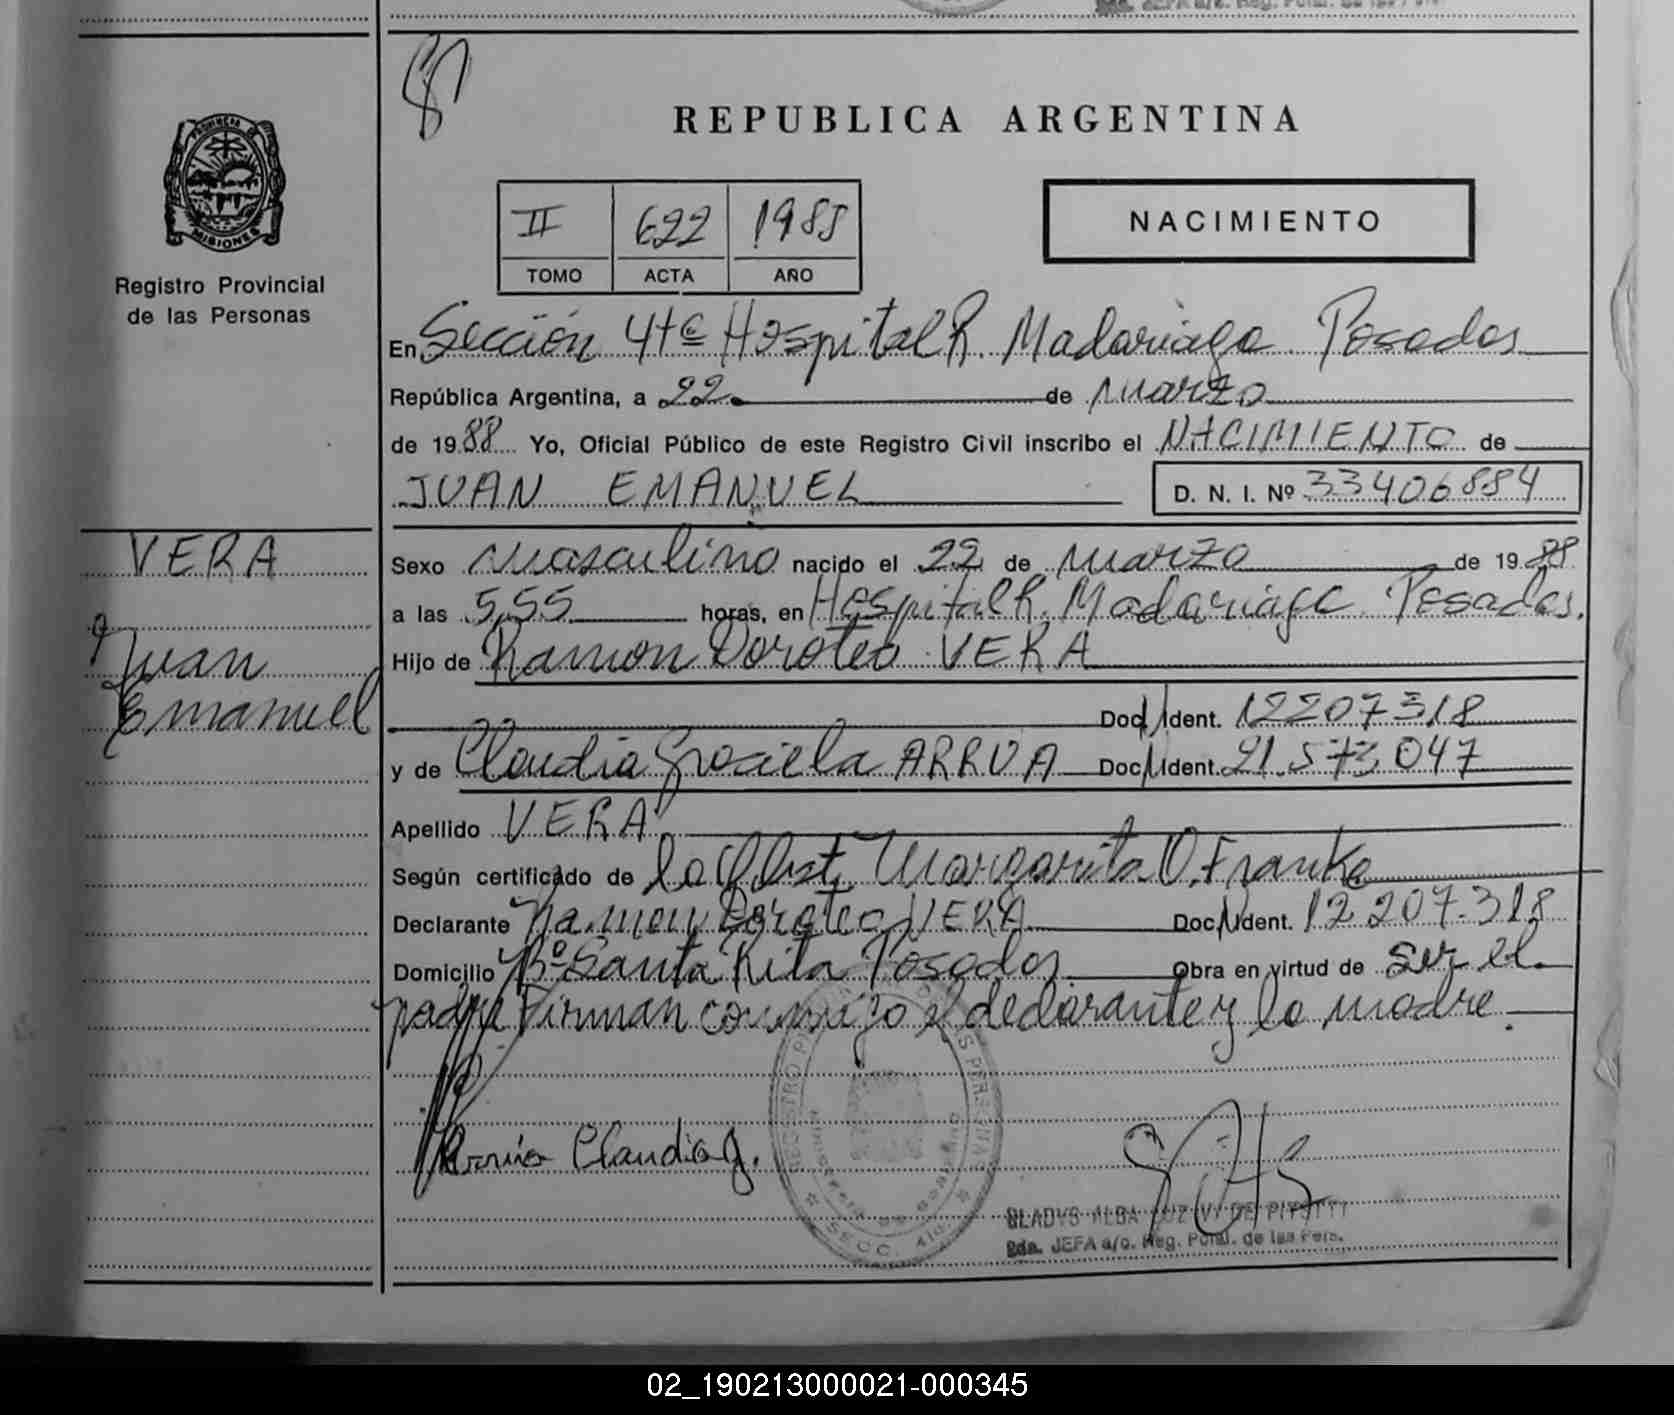 REPUBLICA ARGENTINA
PROVINCIA DE
MISIONES
Registro Provincial
de las Personas
II 622 1988
TOMO ACTA AÑO
NACIMIENTO
En Sección 4ta Hospital R. Madariaga Posadas
República Argentina, a 22 de marzo
de 1988 Yo, Oficial Público de este Registro Civil inscribo el NACIMIENTO de
JUAN EMANUEL D. N. I. Nº 33406884
VERA
Juan
Emanuel
Sexo masculino nacido el 22 de marzo de 1988
a las 5,55 horas, en Hospital R. Madariaga Posadas.
Hijo de Ramon Doroteo VERA
Doc. Ident. 12207318
y de Claudia Graciela ARRUA Doc. Ident. 21.573.047
Apellido VERA
Según certificado de la Obst. Margarita O. Franke
Declarante Ramon Doroteo VERA Doc. Ident. 12.207.318
Domicilio Bº Santa Rita Posadas Obra en virtud de ser el
padre Firman conmigo el declarante y la madre.
Arrúa Claudia G.
REGISTRO PERSONAS
SECC. 4ta.
GLADYS ALBA DE PITOTTI
2da. JEFA a/c. Reg. Pcial. de las Pers.
02_190213000021-000345